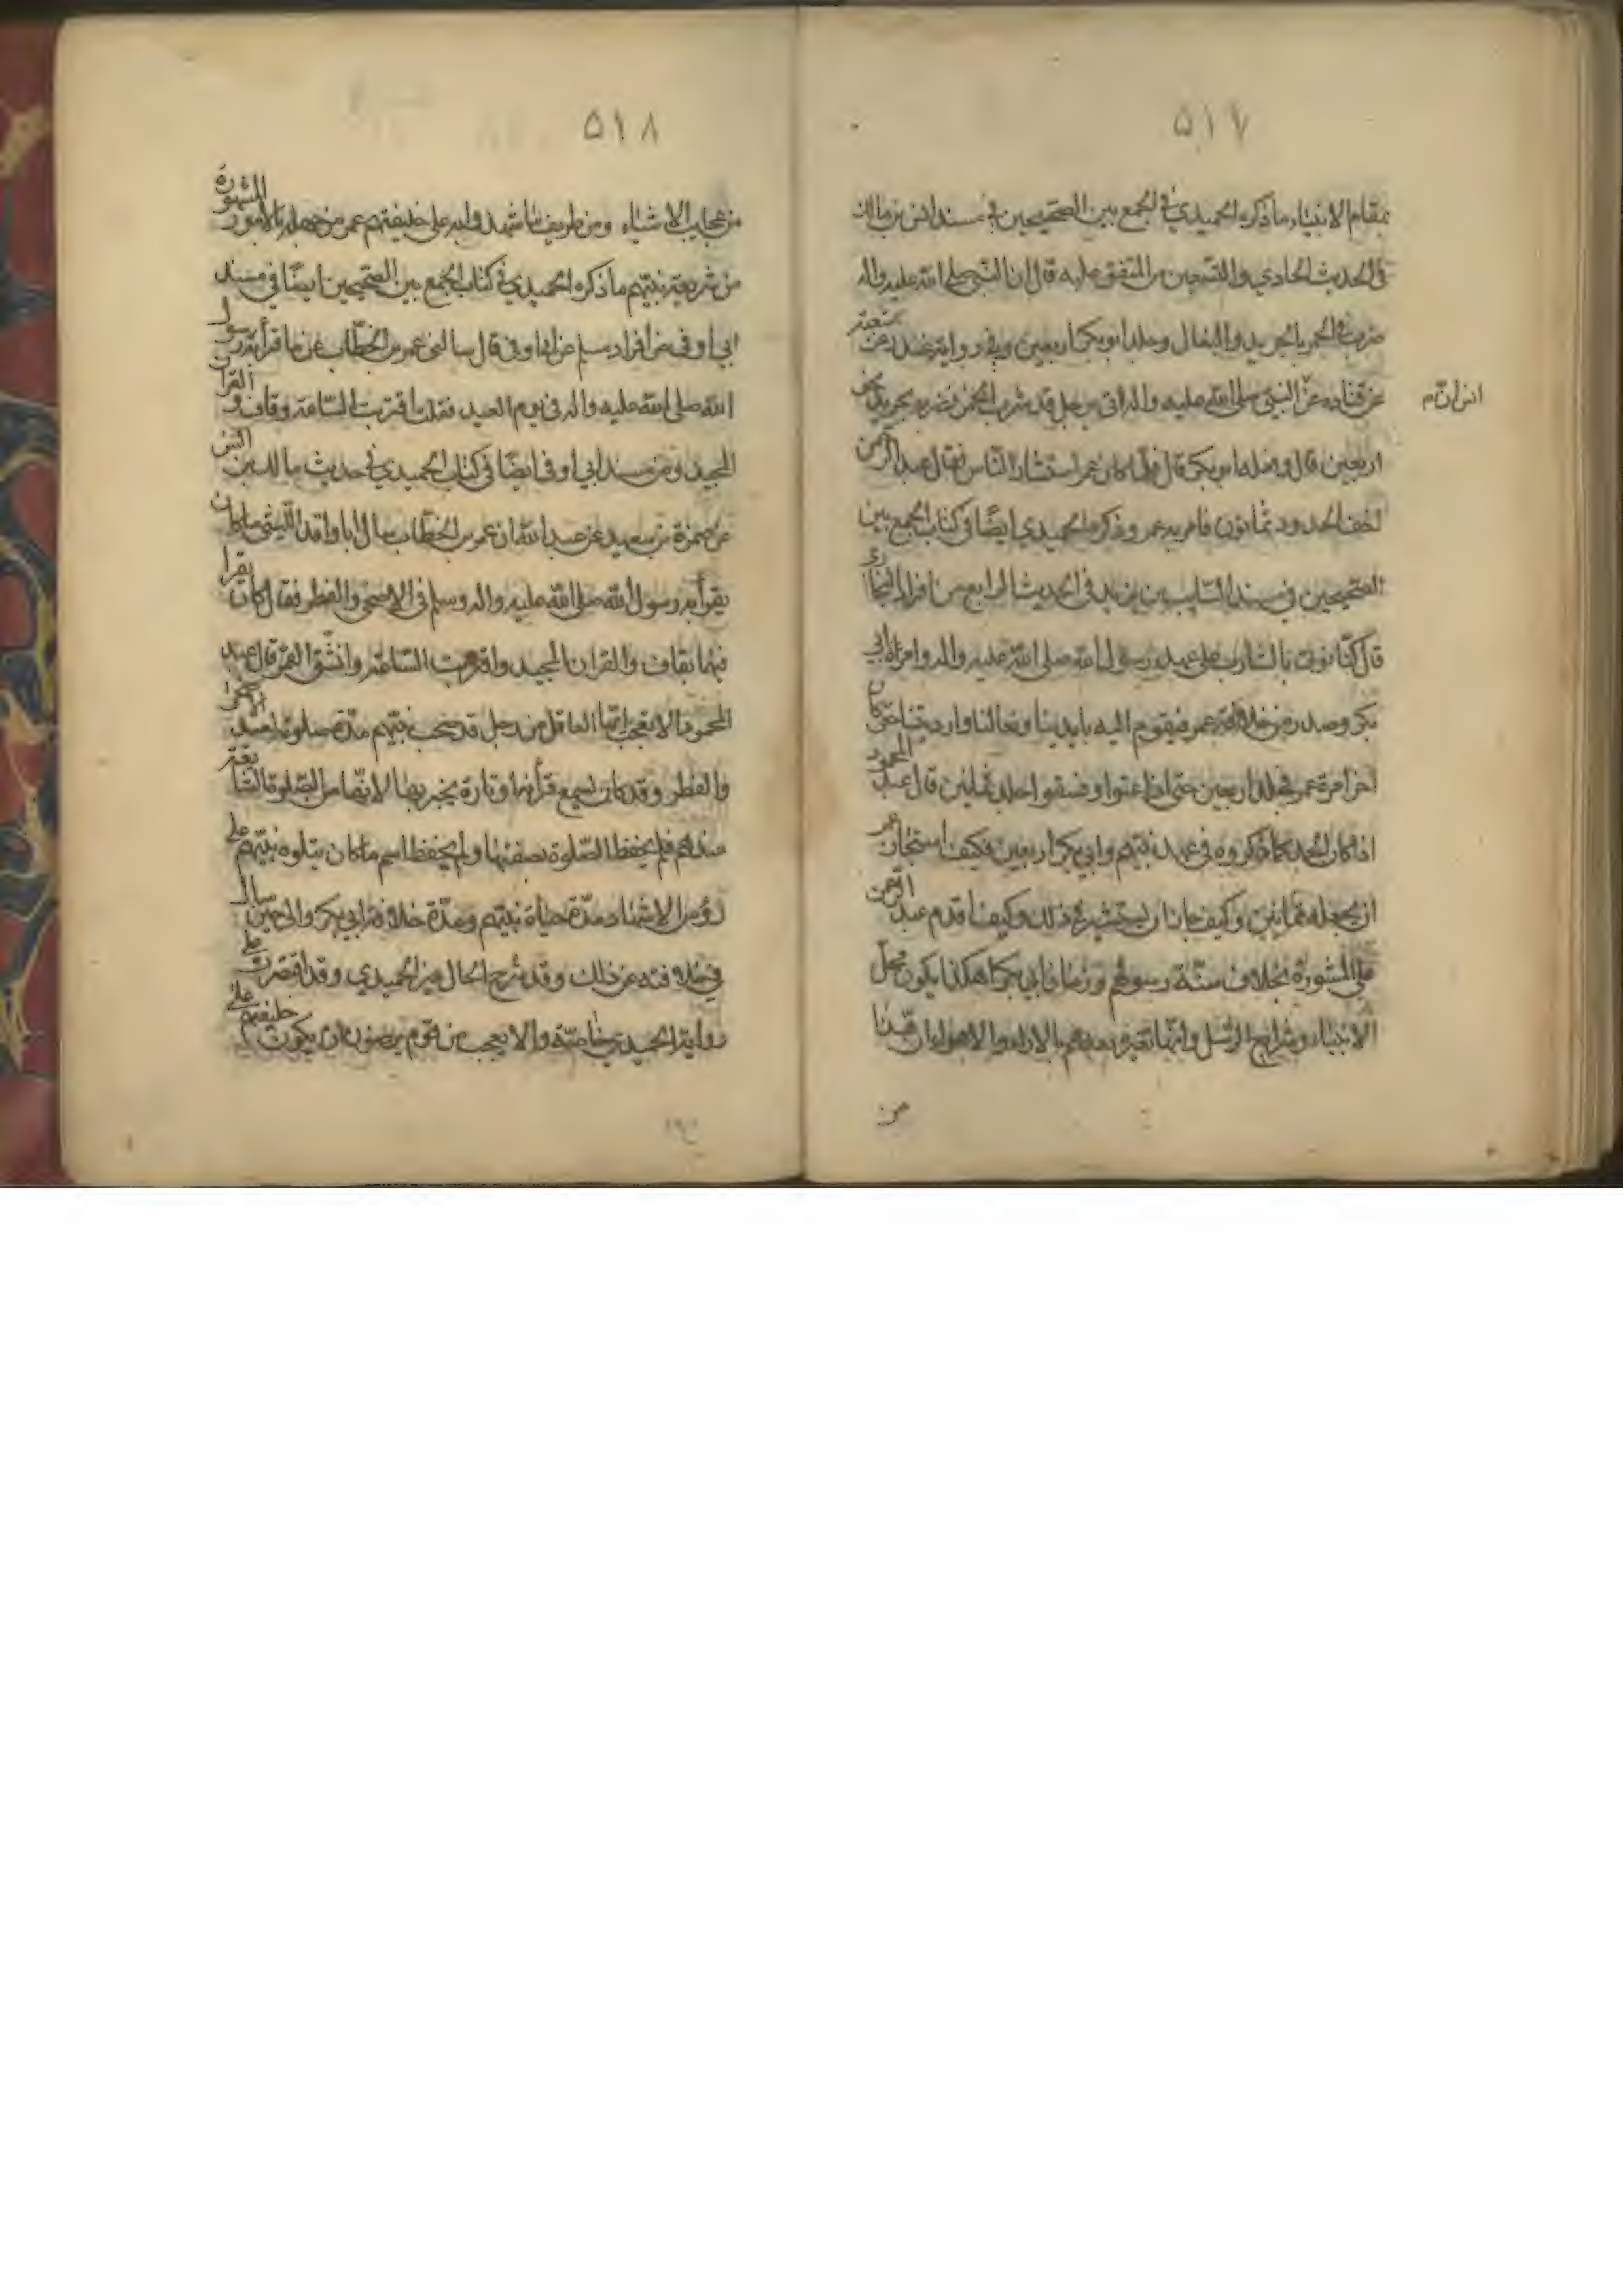 ٥١٧
بمقام الانبياء ما ذكره الحميدي في الجمع بين الصحيحين في مسند انس بن مالك
في الحديث الحادي والتسعين من المتفق عليه قال ان النبي صلى الله عليه واله
ضرب في الخمر بالجريد والنعال وجلد ابو بكر اربعين وفي رواية شعبة
عن قتاده عن النبي صلى الله عليه واله اتي برجل قد شرب الخمر فضربه بجريد نحو
انس انّ م
اربعين قال وفعله ابو بكر قال فلما كان عمر استشار الناس فقال عبد الرحمن
اخف الحدود ثمانون فامر به عمر وذكره الحميدي ايضًا في كتاب الجمع بين
الصحيحين في مسند السايب بن يزيد في الحديث الرابع من افراد البخاري
قال كنا نوتى بالشارب على عهد رسول الله صلى الله عليه واله وامرة ابي
بكر وصدر من خلافة عمر فيقوم اليه بايدينا ونعالنا وارديتنا حتى كان
اخر امرة عمر فجلد اربعين حتى اذا عتوا وفسقوا جلد ثمانين قال عبد المحمود
اذا كان الحد كما ذكروه في عهد نبيهم وابي بكر اربعين فكيف استجاز عمر
ان يجعله ثمانين وكيف جاز ان يستشير في ذلك وكيف اقدم عبد الرحمن
على المشورة بخلاف سنة رسولهم وزمان ابي بكر اهكذا يكون محل
الانبياء وشرايع الرسل وانها تغير بعدهم بالاراء والاهواء ان هذا
من
٥١٨
من عجايب الاشياء ومن طريف ما شهدوا به على خليفتهم عمر من جهله بالامور المشهورة
من شريعة نبيهم ما ذكره الحميدي في كتاب الجمع بين الصحيحين ايضًا في مسند
ابي اوفى من افراد مسلم عن ابي اوفى قال سالني عمر بن الخطاب عن ما قرأ به رسول
الله صلى الله عليه واله في يوم العيد فقلت اقتربت الساعة وقاف والقران
المجيد ومن مسند ابي اوفى ايضًا في كتاب الحميدي في حديث مالك بن انس
عن ضمرة بن سعيد عن عبد الله ان عمر بن الخطاب سال ابا واقد الليثي ما كان
يقرأ به رسول الله صلى الله عليه واله وسلم في الاضحى والفطر فقال كان يقرا
فيهما بقاف والقران المجيد واقتربت الساعة وانشق القمر قال عبد
المحمود الا تعجب ايها العاقل من رجل قد صحب نبيهم مدة صلوته لعيد الاضحى
والفطر وقد كان يسمع قرأتها وتارة يخبر بها لانها من الصلوة
عندهم فلم يحفظ الصلوة بصفتها ولم يحفظ اسم ما كان يتلوه نبيهم على
رؤس الاشهاد مدة حياة نبيهم ومدة خلافة ابي بكر والى حين سأل
في خلافته عن ذلك وقد شرح الحال غير الحميدي وقد اقتصرت على
رواية الحميدي خاصة والا يعجب من قوم يرضون ان يكون خليفتهم على